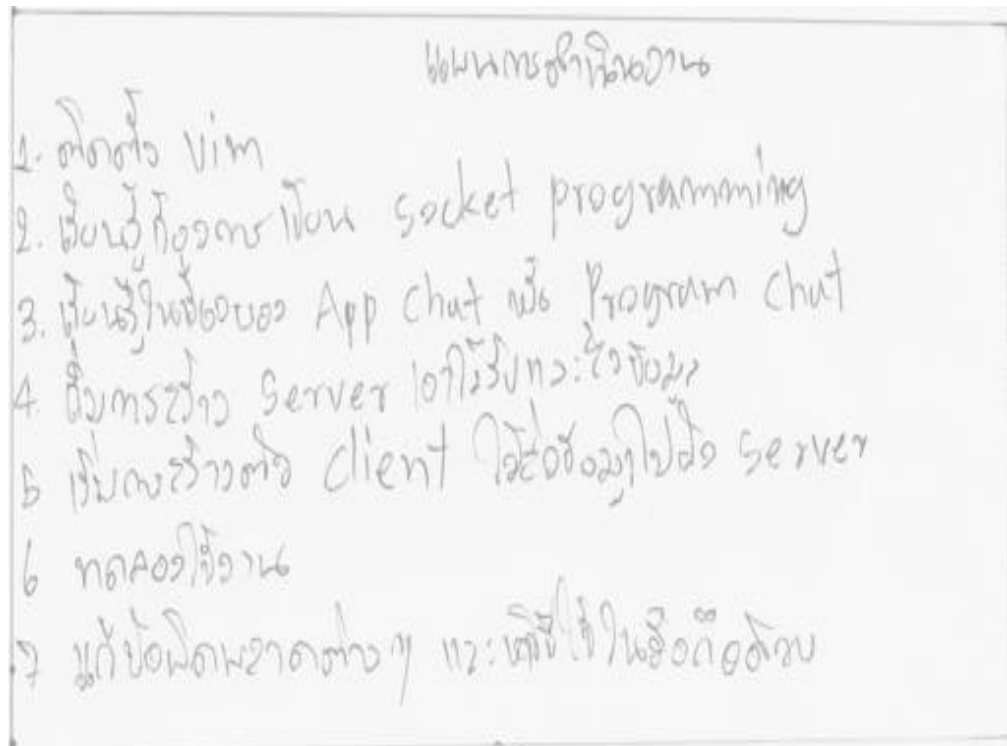 แผนการดำเนินงาน
1. ติดตั้ง vim
2. เรียนรู้เรื่องการเขียน Socket programming
3. เรียนรู้ในเรื่องของ App Chat หรือ Program Chat
4. เริ่มการสร้าง Server เอาไว้รับและส่งข้อมูล
5 เริ่มการสร้างตัว Client ไว้ส่งข้อมูลไปยัง Server
6 ทดลองใช้งาน
7 แก้ข้อผิดพลาดต่างๆ และ ใช้ใน